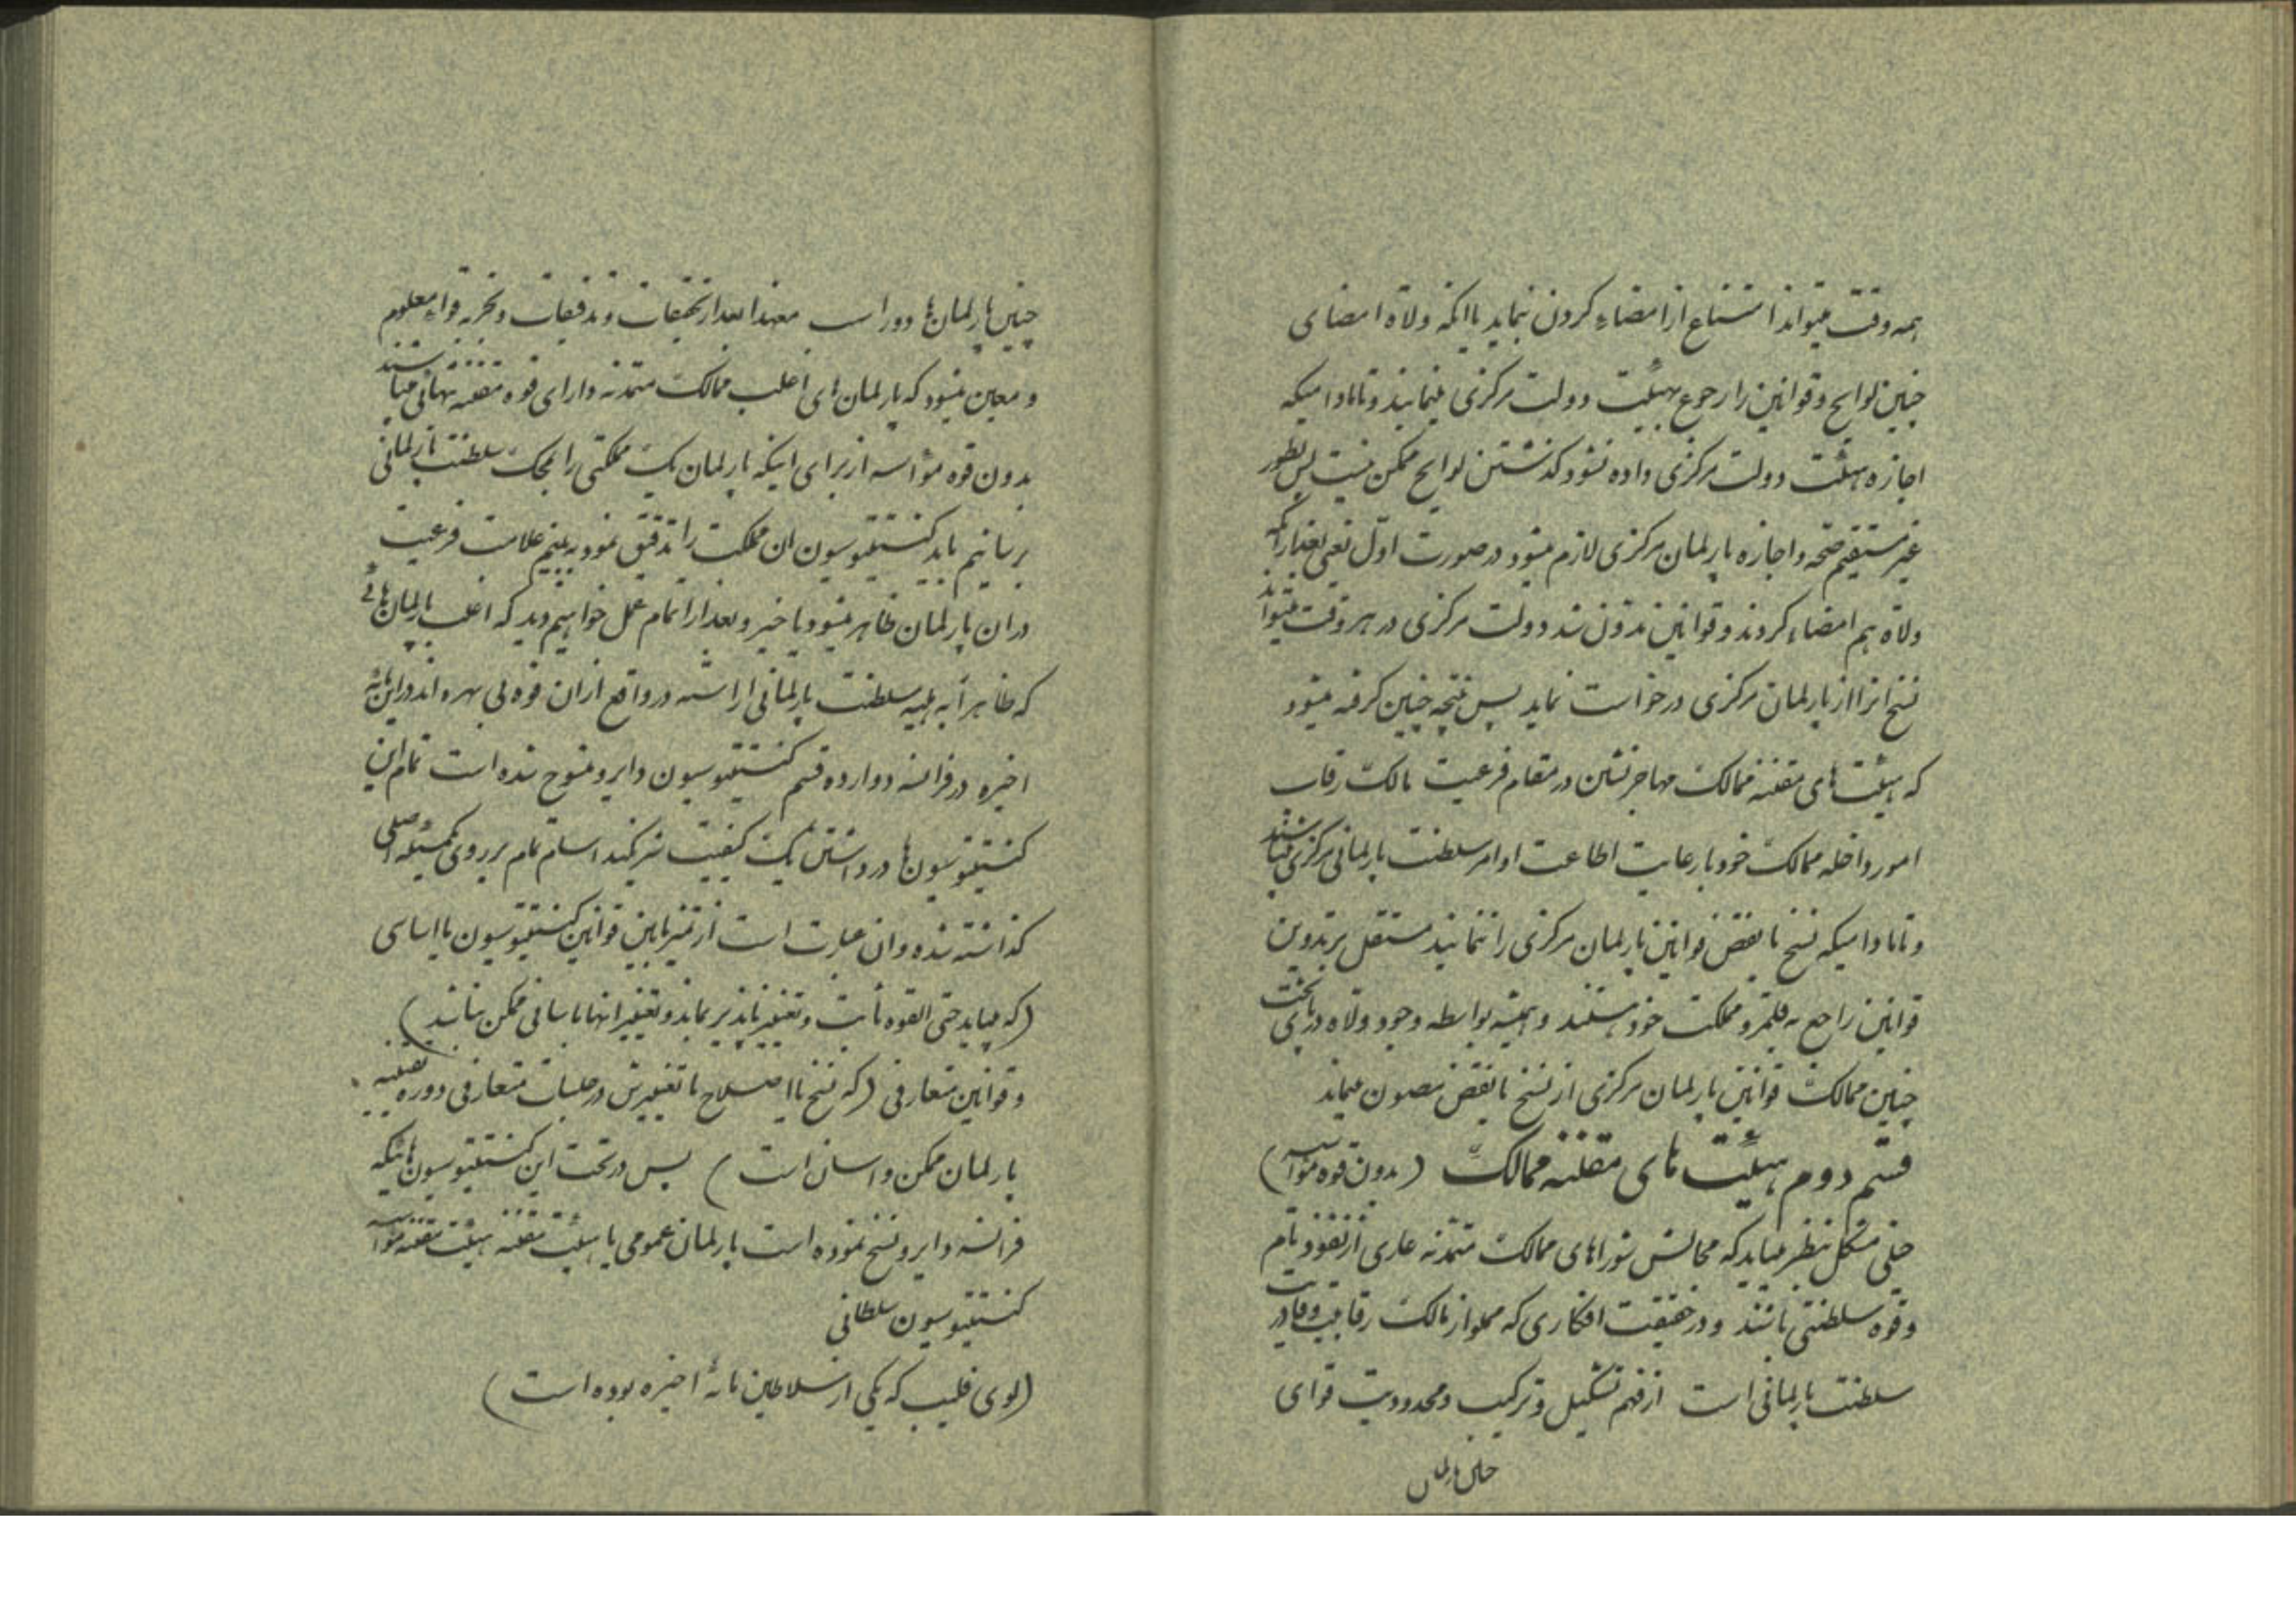 همه وقت میتواند امتناع از امضاء کردن نماید یا انکه ولاة امضای
چنین لوایح و قوانین را رجوع بهیئت دولت مرکزی مینمایند و تا مادامیکه
اجازه هیئت دولت مرکزی داده نشود کذشتن لوایح ممکن نیست پس بطور
غیر مستقیم صحه و اجازه پارلمان مرکزی لازم میشود در صورت اول یعنی بعد از انکه
ولاة هم امضاء کردند و قوانین مدون شد دولت مرکزی در هر وقت میتواند
نسخ انرا از پارلمان مرکزی درخواست نماید پس نتیجه چنین کرفته میشود
که هیئت های مقننه ممالک مهاجر نشین در مقام فرعیت مالک رقاب
امور داخله ممالک خود با رعایت اطاعت اوامر سلطنت پارلمانی مرکزی میباشند
و تا مادامیکه نسخ یا نقض قوانین پارلمان مرکزی را ننمایند مستقل بر تدوین
قوانین راجع به قلمرو مملکت خود هستند و همیشه بواسطه وجود ولاة در پای تخت
چنین ممالک قوانین پارلمان مرکزی از نسخ یا نقض مصون میماند
قسم دوم هیئت های مقننه ممالک (بدون قوه مؤسسه)
خیلی مشکل بنظر میاید که مجالس شوراهای ممالک متمدنه عاری از نفوذ تام
و قوه سلطنتی باشند و در حقیقت افکاری که مملو از مالک رقابیت و قادریت
سلطنت پارلمانی است از فهم تشکیل و ترکیب و محدودیت قوای
چنین پارلمان
چنین پارلمان ها دور است معهذا بعد از تحقیقات و تدقیقات و تجربه قواء معلوم
و معین میشود که پارلمان های اغلب ممالک متمدنه دارای قوه مقننه تنهائی میباشند
بدون قوه مؤسسه از برای اینکه پارلمان یک مملکتی را بمحک سلطنت پارلمانی
برسانیم باید کنستیتیوسیون ان مملکت را تدقیق نموده ببینیم علامت فرعیت
در ان پارلمان ظاهر میشود یا خیر و بعد از اتمام عمل خواهیم دید که اغلب پارلمان هائی
که ظاهراً به سلطنت پارلمانی اراسته در واقع از ان قوه بی بهره اند در این مائه
اخیره در فرانسه دوازده قسم کنستیتیوسیون دایر و منسوخ شده است تمام این
کنستیتیوسیون ها در داشتن یک کیفیت شریکند اساس تمام بر روی یک مسئله اصلی
کذاشته شده و ان عبارت است از تمیز مابین قوانین کنستیتیوسیون یا اساسی
(که میباید حتی القوه ثابت و تغییر ناپذیر بماند و تغییر انها باسانی ممکن نباشد)
و قوانین متعارفی (که نسخ یا اصلاح یا تغییرش در جلسات متعارفی دوره تقنینیه
پارلمان ممکن و اسان است) پس در تحت این کنستیتیوسیون هائیکه
فرانسه دایر و نسخ نموده است پارلمان عمومی یا هیئت مقننه هیئت مقننه مؤسسه
کنستیتیوسیون سلطانی
(لوی فلیپ که یکی از سلاطین مائه اخیره بوده است)